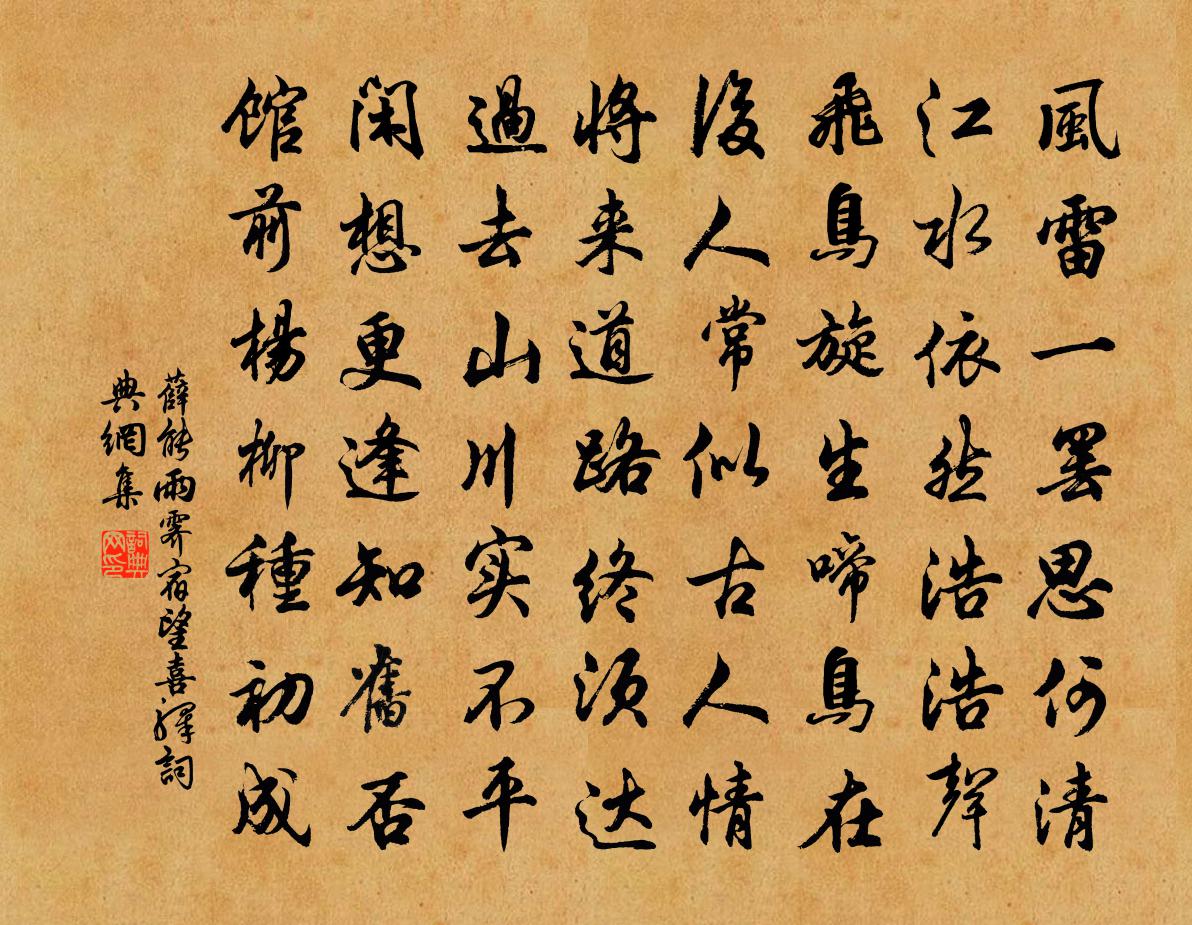 風雷一罢思何清
江水依然浩浩聲
飛鳥旋生啼鳥在
後人常似古人情
將来道路终须达
過去山川实不平
闲想更逢知舊否
馆前楊柳種初成
薛能雨霽宿望喜驛詞
典網集
詞典
网印